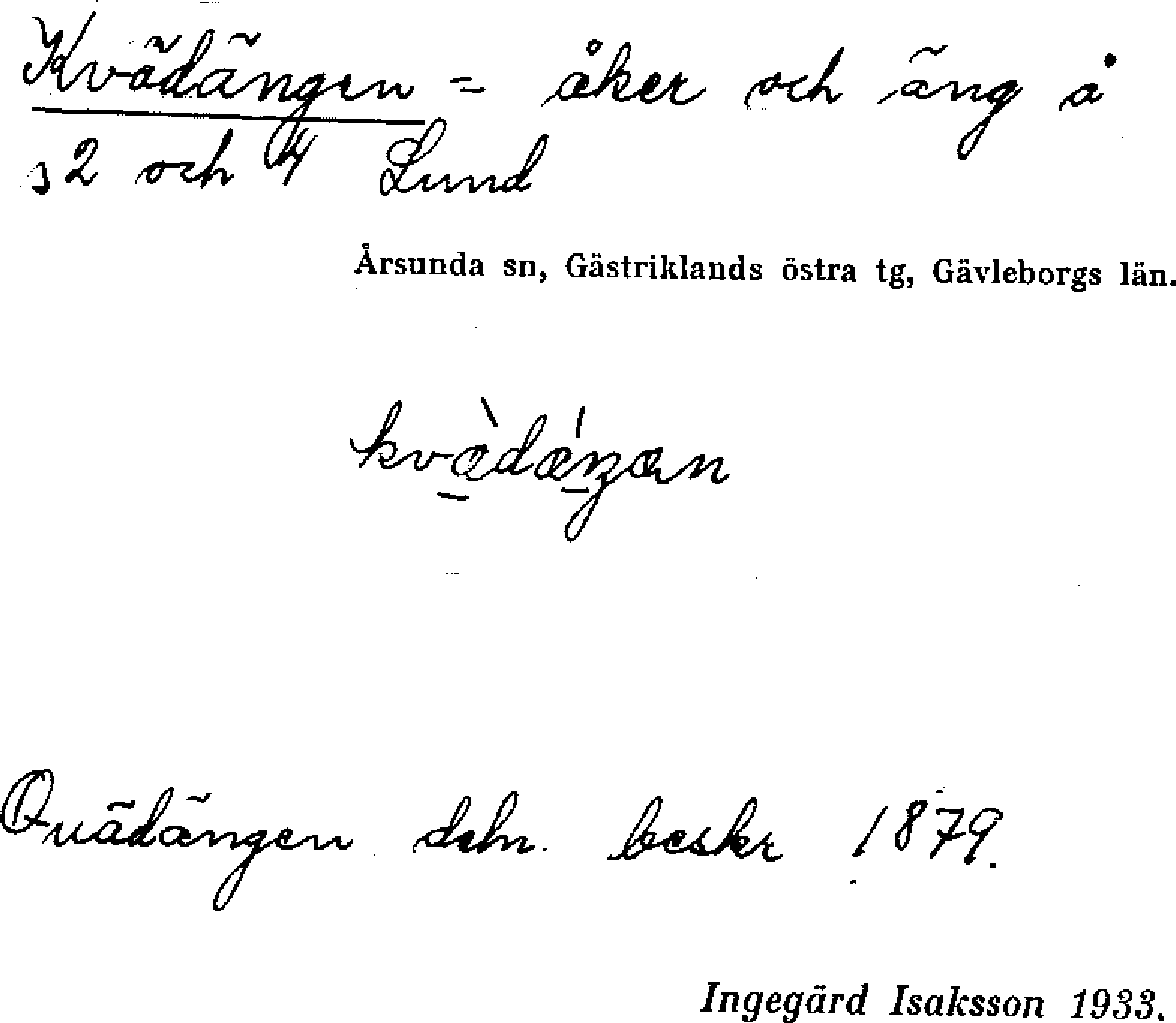 Kvädängen = åker och äng å
s 2 och 4 Lund
Årsunda sn, Gästriklands östra tg, Gävleborgs län.
Quädängen beskr 1879.
Ingegärd Isaksson 1933.